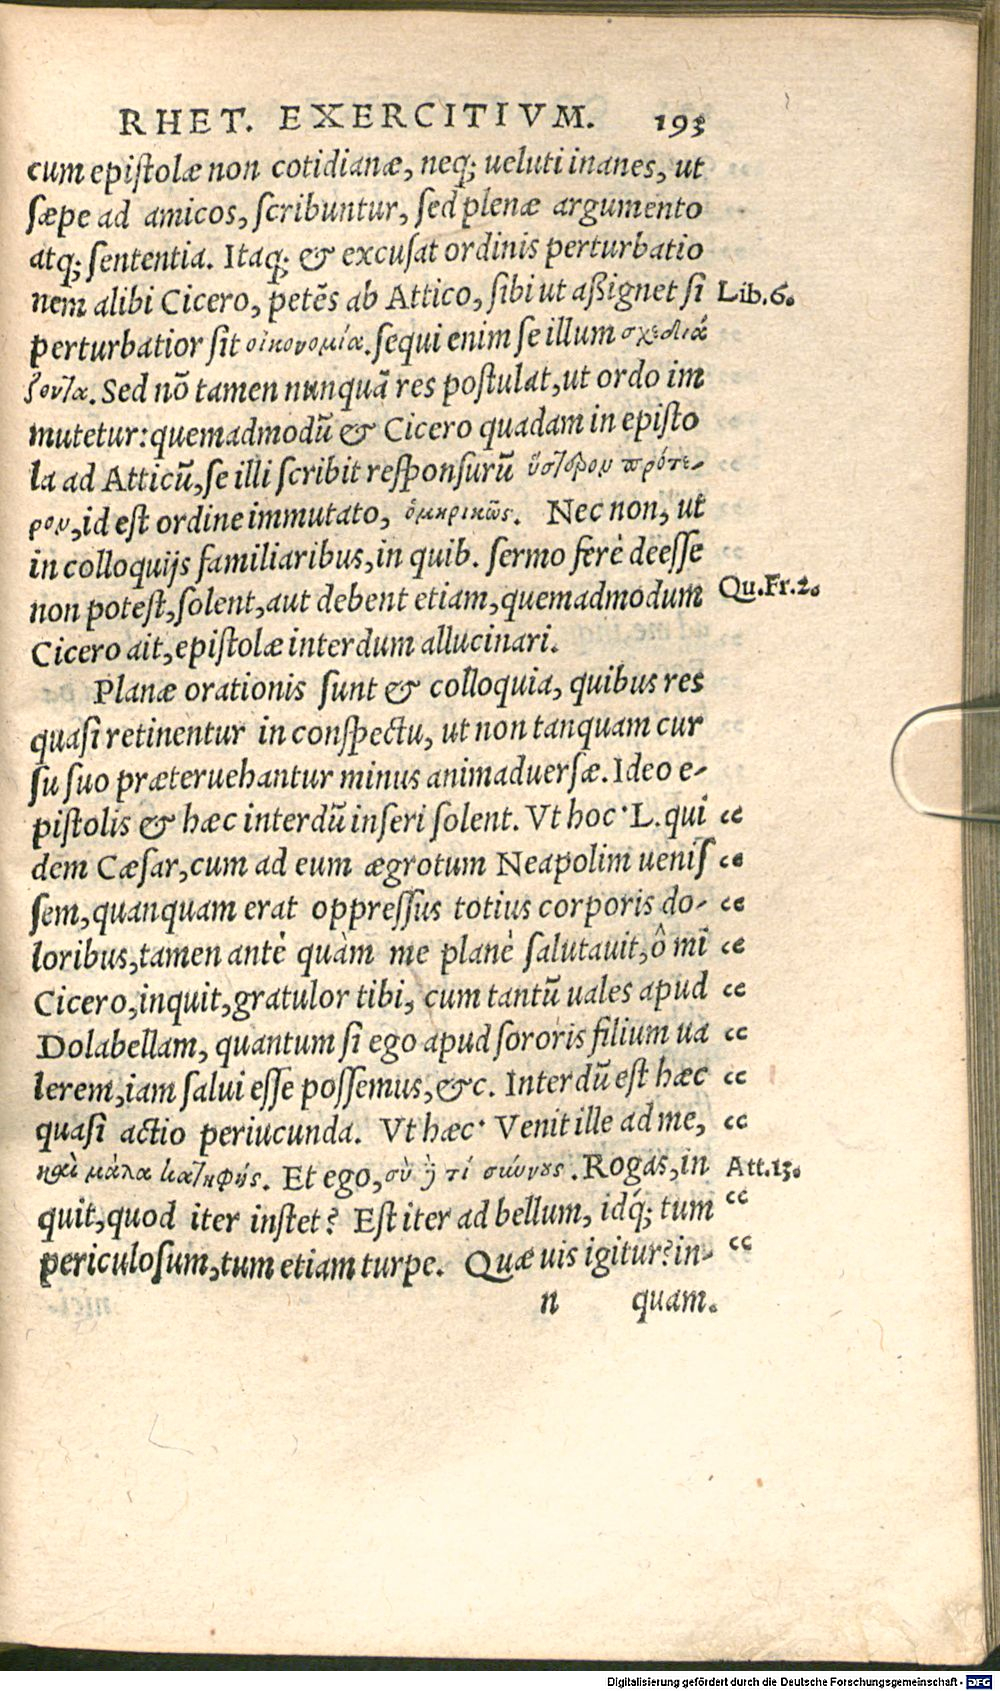 RHET. EXERCITIVM. 193
cum epistolæ non cotidianæ, neq; ueluti inanes, ut
sæpe ad amicos, scribuntur, sed plenæ argumento
atq; sententia. Itaq; & excusat ordinis perturbatio
nem alibi Cicero, petẽs ab Attico, sibi ut aßignet si Lib.6.
perturbatior sit οἰκονομία. sequi enim se illum σχεδιά
ζοντα. Sed nõ tamen nunquã res postulat, ut ordo im
mutetur: quemadmodũ & Cicero quadam in episto
la ad Atticũ, se illi scribit responsurũ ὕστερον πρότε-
ρον, id est ordine immutato, ὁμηρικῶς. Nec non, ut
in colloquijs familiaribus, in quib. sermo ferè deesse
non potest, solent, aut debent etiam, quemadmodum Qu.Fr.2.
Cicero ait, epistolæ interdum allucinari.
Planæ orationis sunt & colloquia, quibus res
quasi retinentur in conspectu, ut non tanquam cur
su suo præteruehantur minus animaduersæ. Ideo e-
pistolis & hæc interdũ inseri solent. Vt hoc· L. qui “
dem Cæsar, cum ad eum ægrotum Neapolim uenis “
sem, quanquam erat oppressus totius corporis do- “
loribus, tamen antè quàm me planè salutauit, ô mi “
Cicero, inquit, gratulor tibi, cum tantũ uales apud “
Dolabellam, quantum si ego apud sororis filium ua “
lerem, iam salui esse possemus, &c. Interdũ est hæc “
quasi actio periucunda. Vt hæc· Venit ille ad me, “
καὶ μάλα κατηφής. Et ego, σὺ δὲ τί σύννους. Rogas, in Att.13.
quit, quod iter instet? Est iter ad bellum, idq́; tum “
periculosum, tum etiam turpe. Quæ uis igitur? in- “
n quam.
Digitalisierung gefördert durch die Deutsche Forschungsgemeinschaft - DFG